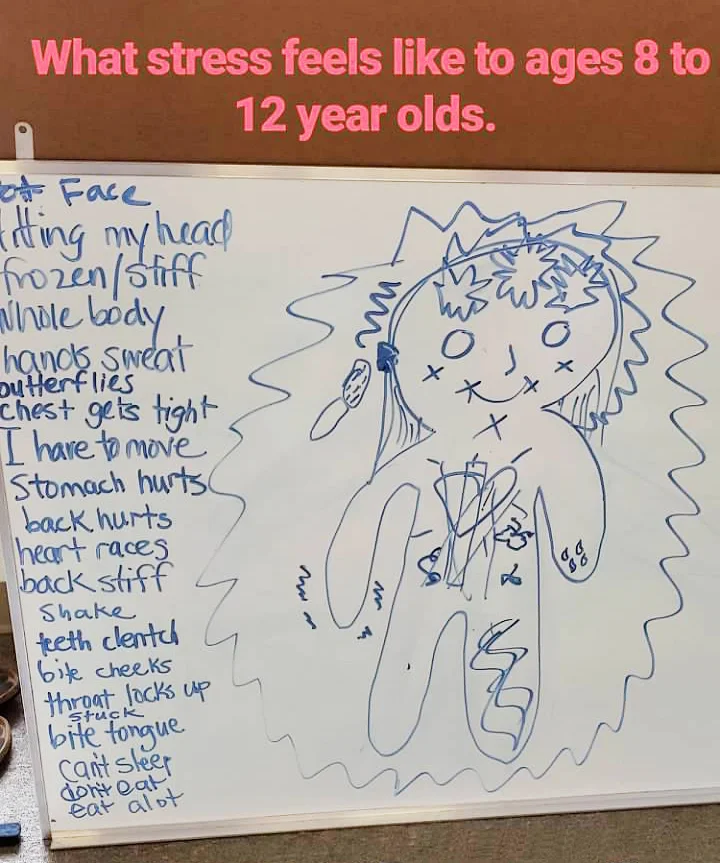 What stress feels like to ages 8 to
12 year olds.
Face
my head
frozen/stiff
whole body
hands sweat
butterflies
chest gets tight
I have to move
Stomach hurts
back hurts
heart races
back stiff
shake
teeth clentch
bite cheeks
throat locks up
stuck
bite tongue
can't sleep
don't eat
eat alot